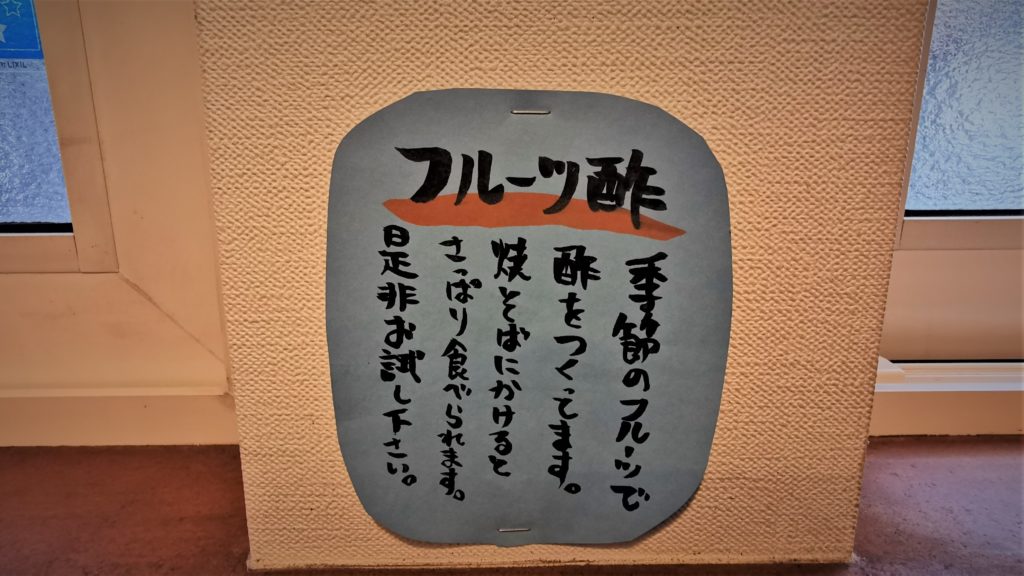 フルーツ酢
季節のフルーツで
酢をつくってます。
焼そばにかけると
さっぱり食べられます。
是非お試し下さい。